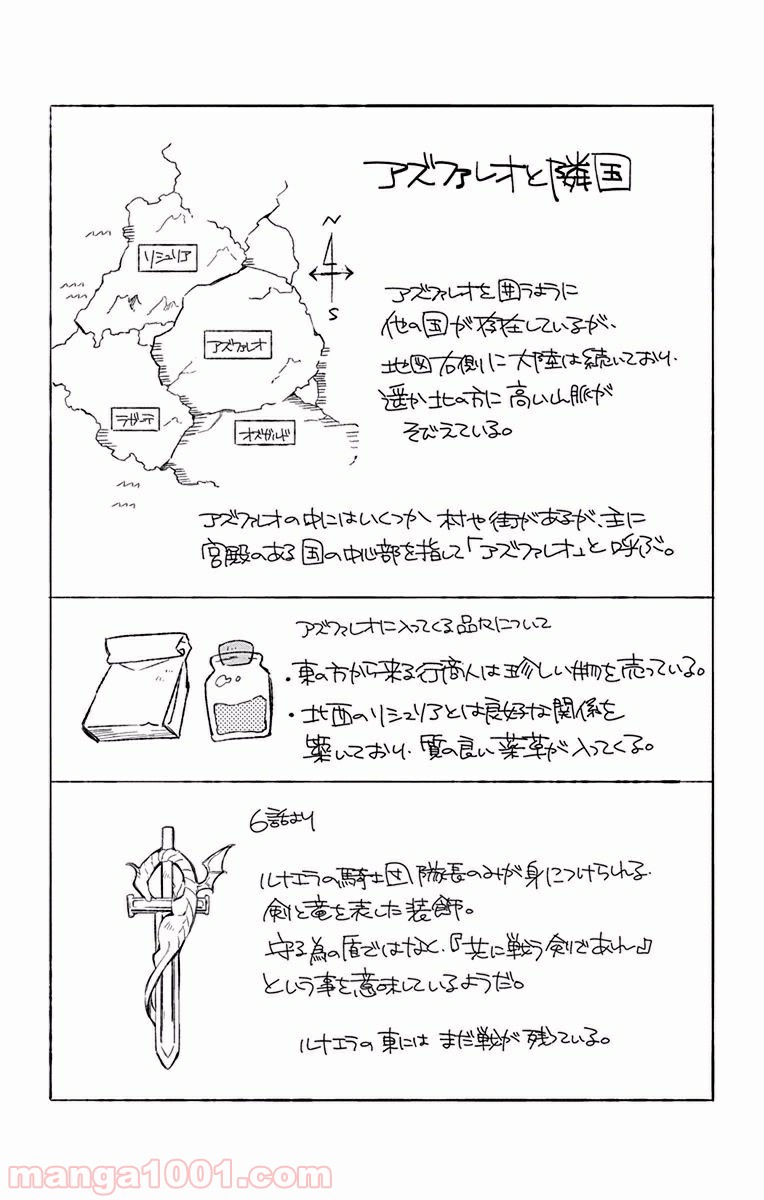 アズファレオと隣国
N
S
リシュリア
アズファレオ
ラガーテ
オズガルド
アズファレオを囲うように
他の国が存在しているが、
地図右側に大陸は続いており、
遥か北の方に高い山脈が
そびえている。
アズファレオの中にはいくつか村や街があるが、主に
宮殿のある国の中心部を指して「アズファレオ」と呼ぶ。
アズファレオに入ってくる品々について
・東の方から来る行商人は珍しい物を売っている。
・北西のリシュリアとは良好な関係を
築いており、質の良い薬草が入ってくる。
6話より
ルナエラの騎士団隊長のみが身につけられる、
剣と竜を表した装飾。
守る為の盾ではなく、『共に戦う剣であれ』
という事を意味しているようだ。
ルナエラの東にはまだ戦が残っている。
manga1001.com